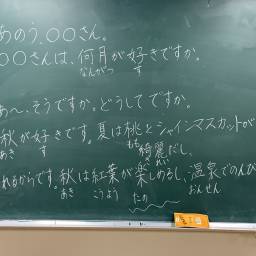 あのう、〇〇さん。
〇〇さんは、何月が好きですか。
なんがつ す
あ〜、そうですか。どうしてですか。
秋が好きです。夏は桃とシャインマスカットが
あき す もも
綺麗だし、
きれい
れるからです。秋は紅葉が楽しめるし、温泉でのんび
あき こうよう たの おんせん